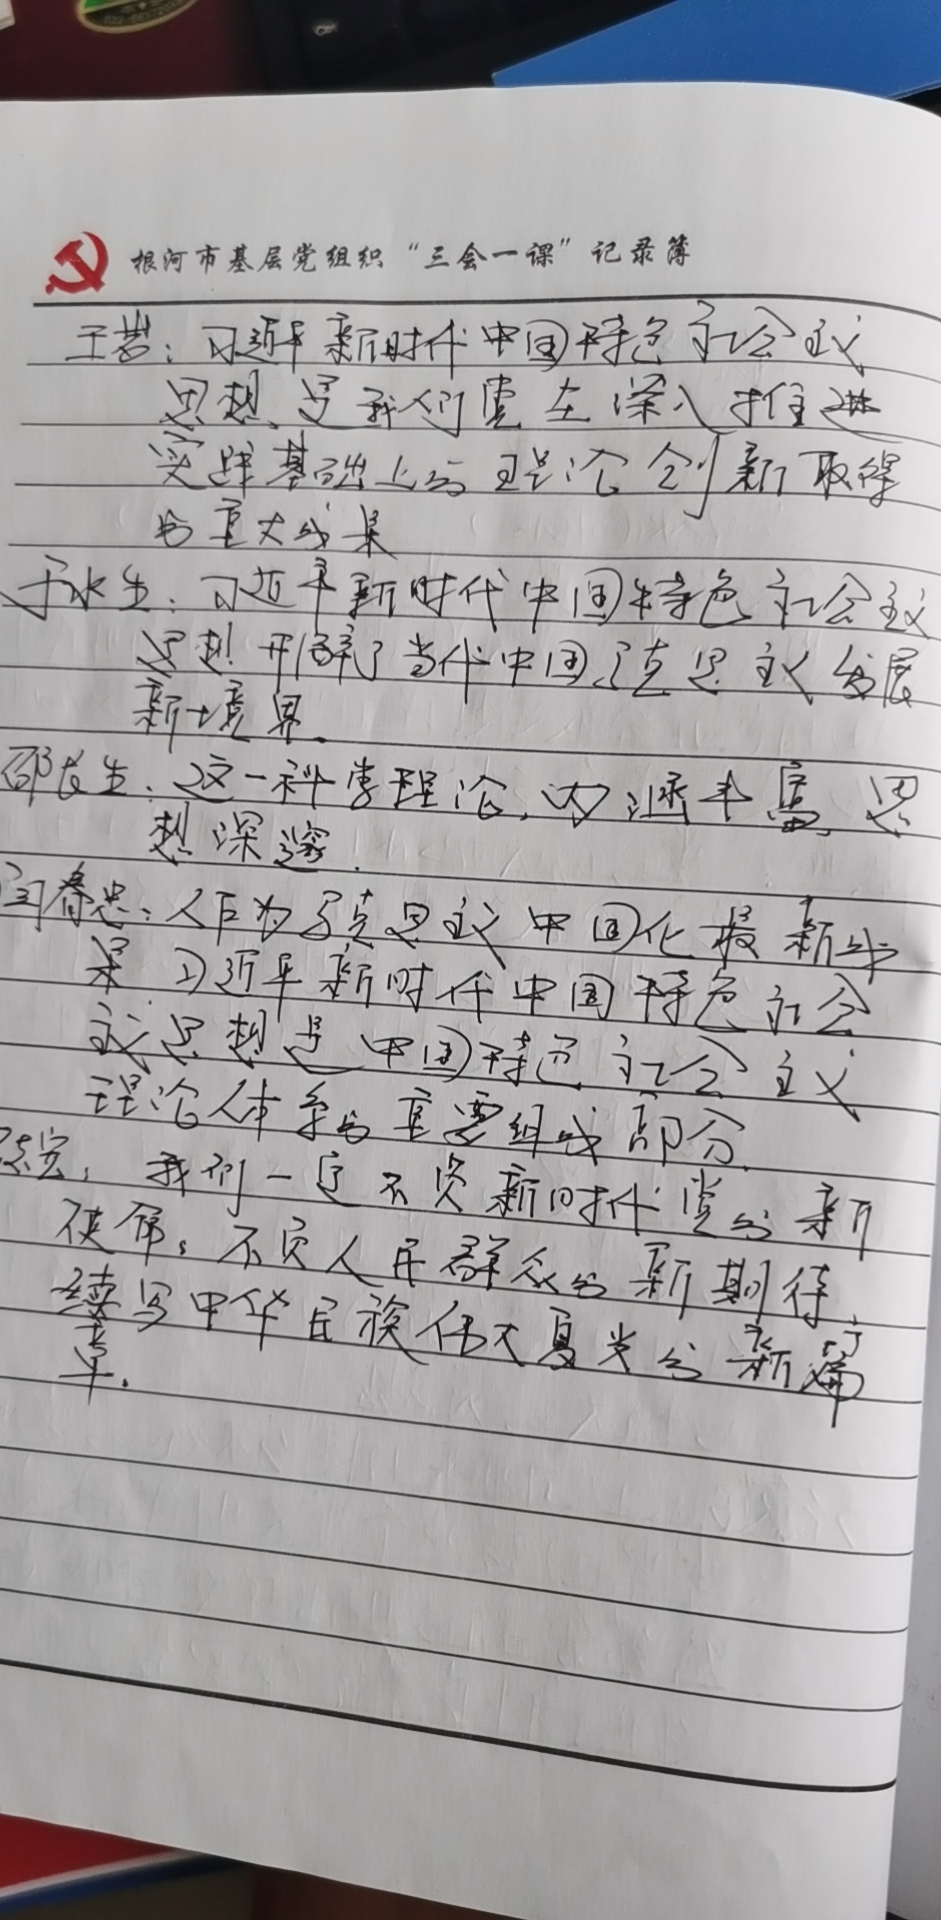 根河市基层党组织“三会一课”记录簿
王岩：习近平新时代中国特色社会主义
思想，是我们党在深入推进
实践基础上的理论创新取得
的重大成果
于水生：习近平新时代中国特色社会主义
思想开辟了当代中国马克思主义发展
新境界。
邵长生：这一科学理论，内涵丰富，思
想深邃.
闫春忠：作为马克思主义中国化最新成
果 习近平新时代中国特色社会
主义思想是中国特色社会主义
理论体系的重要组成部分.
我们一定不负新时代党的新
使命，不负人民群众的新期待，
续写中华民族伟大复兴的新篇
章.